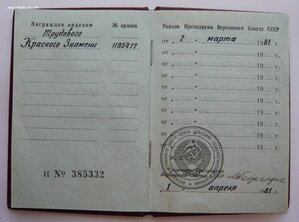 Награжден орденом № ордена
Трудового
Красного Знамени 1135477.
И № 385332
Указом Президиума Верховного Совета СССР
от 2 марта 1981
от 19
от 19
от 19
от 19
от 19
от 19
от 19
от 19
СССР
1 апреля 1981.